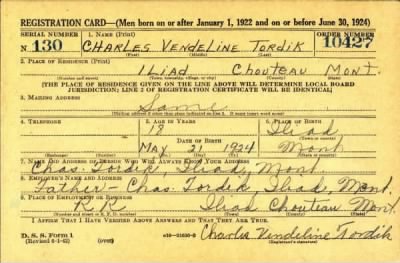 REGISTRATION CARD—(Men born on or after January 1, 1922 and on or before June 30, 1924)
SERIAL NUMBER 1. NAME (Print) ORDER NUMBER
N 130 CHARLES VENDELINE TORDIK 10427
(First) (Middle) (Last)
2. PLACE OF RESIDENCE (Print)
ILIAD CHOUTEAU MONT.
(Number and street) (Town, township, village, or city) (County) (State)
[THE PLACE OF RESIDENCE GIVEN ON THE LINE ABOVE WILL DETERMINE LOCAL BOARD
JURISDICTION; LINE 2 OF REGISTRATION CERTIFICATE WILL BE IDENTICAL]
3. MAILING ADDRESS
Same
(Mailing address if other than place indicated on line 2. If same insert word same)
4. TELEPHONE 5. AGE IN YEARS 6. PLACE OF BIRTH
18 Iliad
DATE OF BIRTH (Town or county)
MAY 21 1924 Mont
(Exchange) (Number) (Mo.) (Day) (Yr.) (State or country)
7. NAME AND ADDRESS OF PERSON WHO WILL ALWAYS KNOW YOUR ADDRESS
Chas. Tordik, Iliad, Mont
8. EMPLOYER'S NAME AND ADDRESS
Father - Chas. Tordik, Iliad, Mont.
9. PLACE OF EMPLOYMENT OR BUSINESS
RR Iliad Chouteau Mont.
(Number and street or R. F. D. number) (Town) (County) (State)
I AFFIRM THAT I HAVE VERIFIED ABOVE ANSWERS AND THAT THEY ARE TRUE.
D. S. S. Form 1
(Revised 6-1-42) (over) Charles Vendeline Tordik
(Registrant's signature)